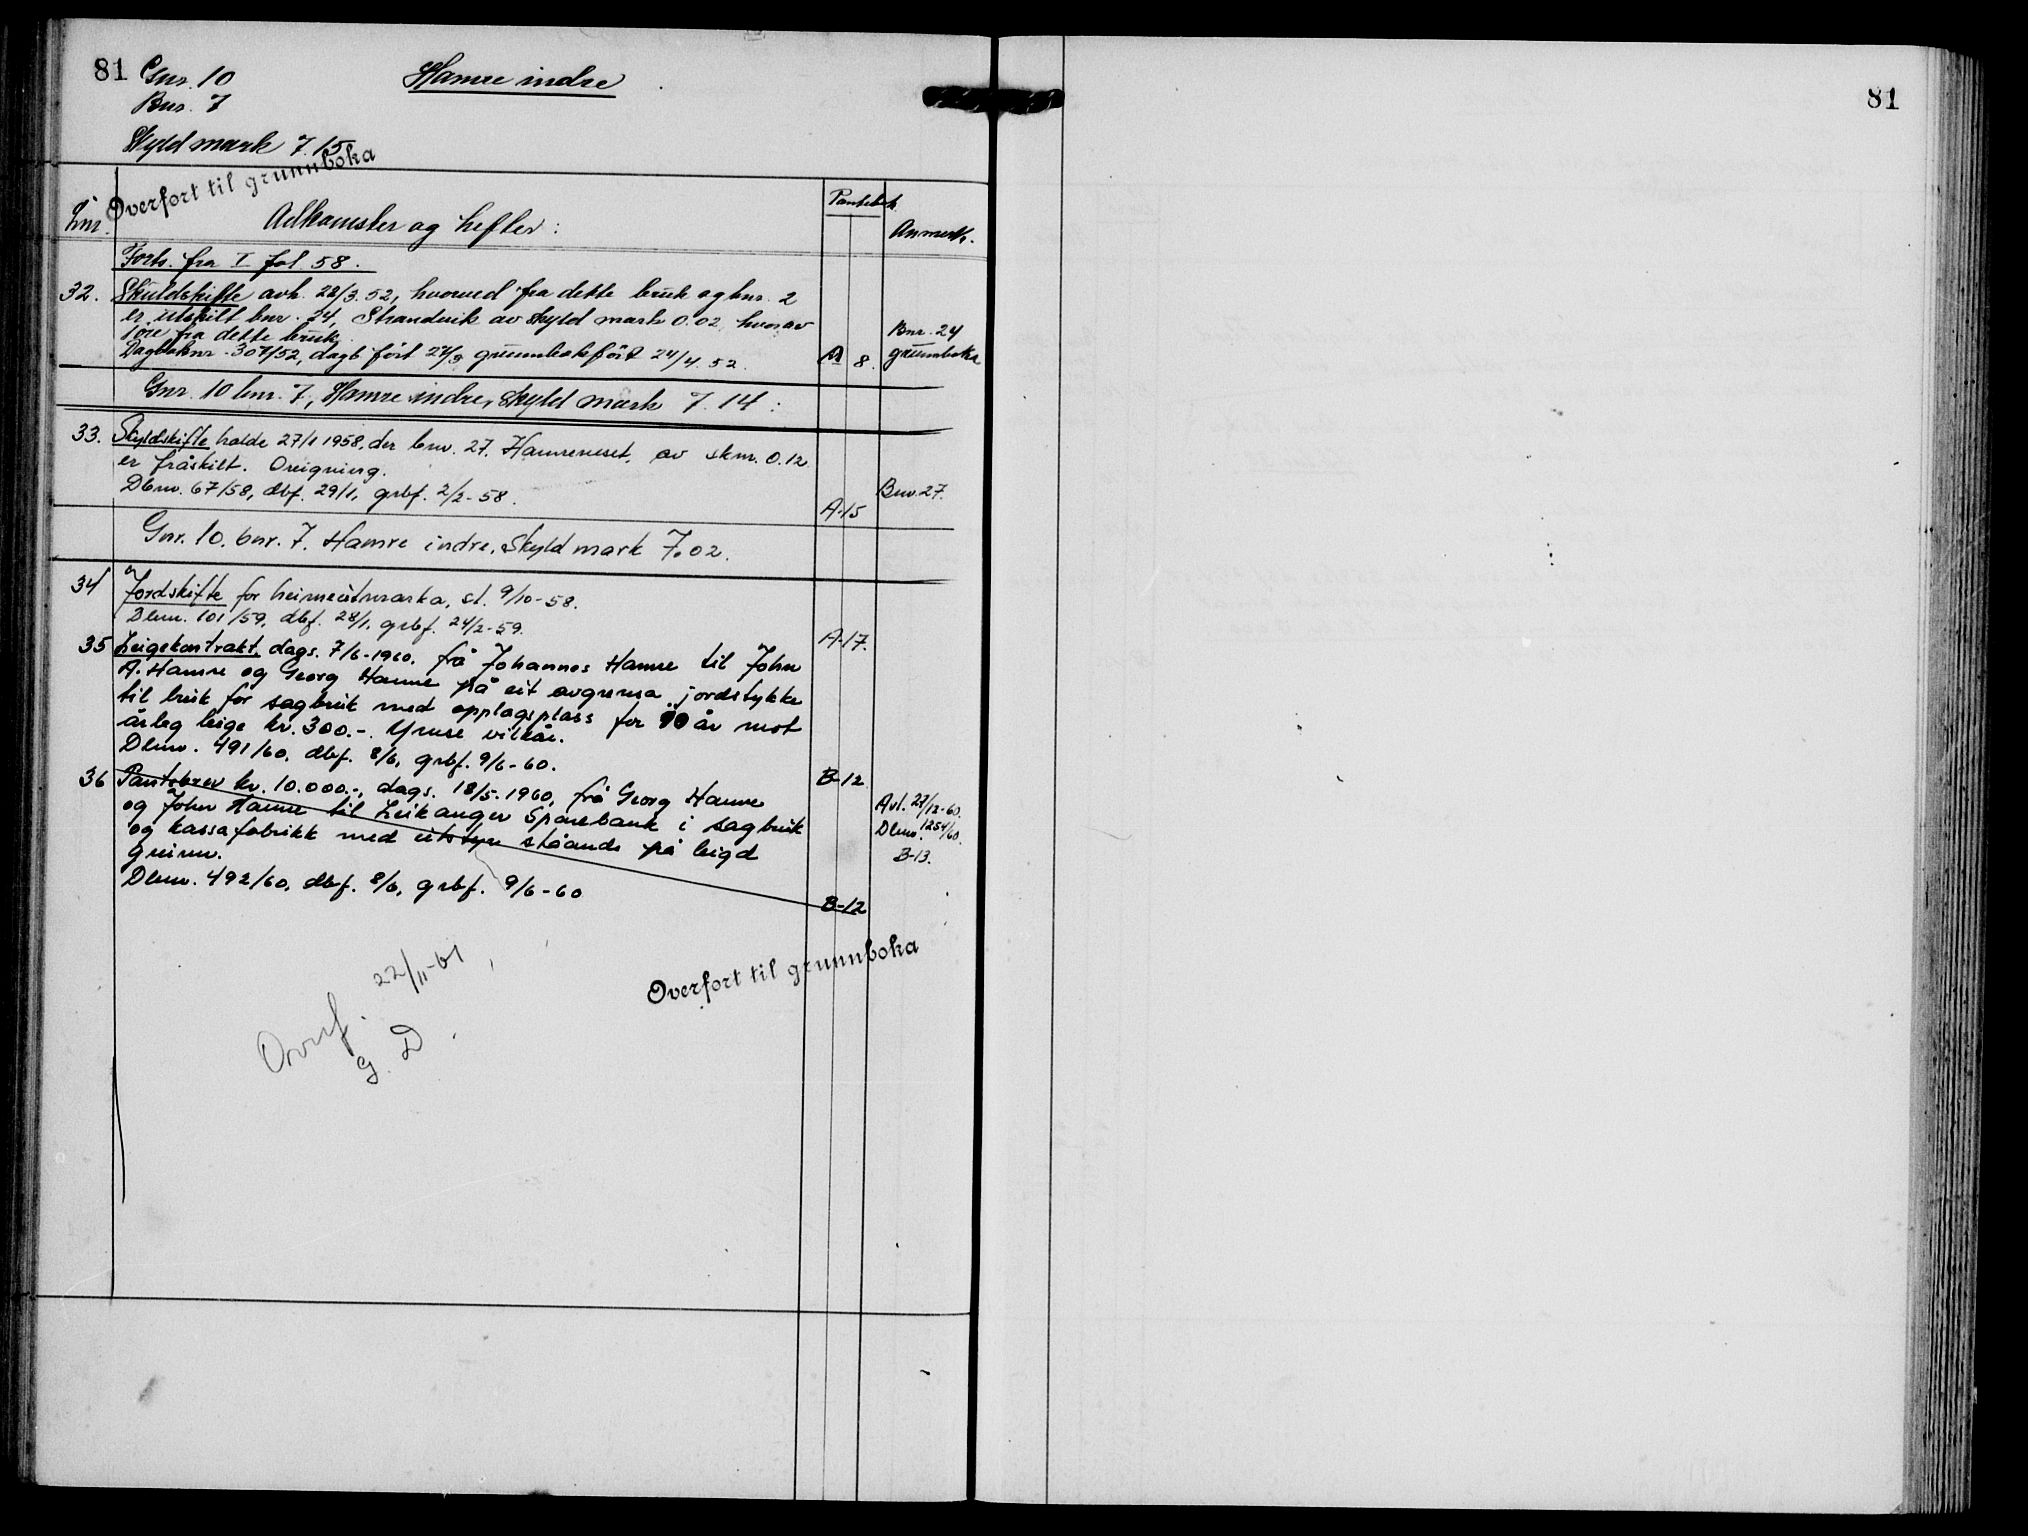 81
Gnr. 10
Hamre indre
Bnr. 7
Skyld mark 7.15
Overfort til grunnboka
Lnr.
Adkomster og hefter:
Pantebok
Anmerk.
Forts. fra I fol. 58.
32. Skuldskifte avh. 28/3.52, hvorved fra dette bruk og bnr. 2
er utskilt bnr. 24, Strandvik av skyld mark 0.02, hvorav
1 øre fra dette bruk.
Dagboknr. 307/52, dagb. ført 27/3 grunnbokført 24/4.52.
A 8.
Bnr. 24
grunnboka
Gnr. 10 bnr. 7, Hamre indre, skyld mark 7.14:
33. Skyldskifte halde 27/1 1958, der bnr. 27, Hamreneset, av skm. 0.12
er fråskilt. Oreigning.
Dbnr. 67/58, dbf. 29/1, grbf. 2/2-58.
A-15
Bnr. 27.
Gnr. 10. bnr. 7. Hamre indre, Skyld mark 7.02.
34 Jordskifte for heimeutmarka, sl. 9/10-58.
Dbnr. 101/59, dbf. 28/1, grbf. 24/2-59.
A-17.
35 Leigekontrakt, dags. 7/6-1960, frå Johannes Hamre til John
A. Hamre og Georg Hamre på eit avgrensa jordstykke
til bruk for sagbruk med opplagsplass for 10 år mot
årleg leige kr. 300.-. Ymse vilkår.
Dbnr. 491/60, dbf. 8/6, grbf. 9/6-60.
B-12
36 Pantebrev kr. 10.000.-, dags. 18/5-1960, frå Georg Hamre
og John Hamre til Leikanger Sparebank i sagbruk
og kassafabrikk med utstyr ståande på leigd
grunn.
Dbnr. 492/60, dbf. 8/6, grbf. 9/6-60
B-12
Avl. 27/12-60.
Dbnr. 1254/60.
B-13.
Overf. 22/11-61
G. D.
Overfort til grunnboka
81